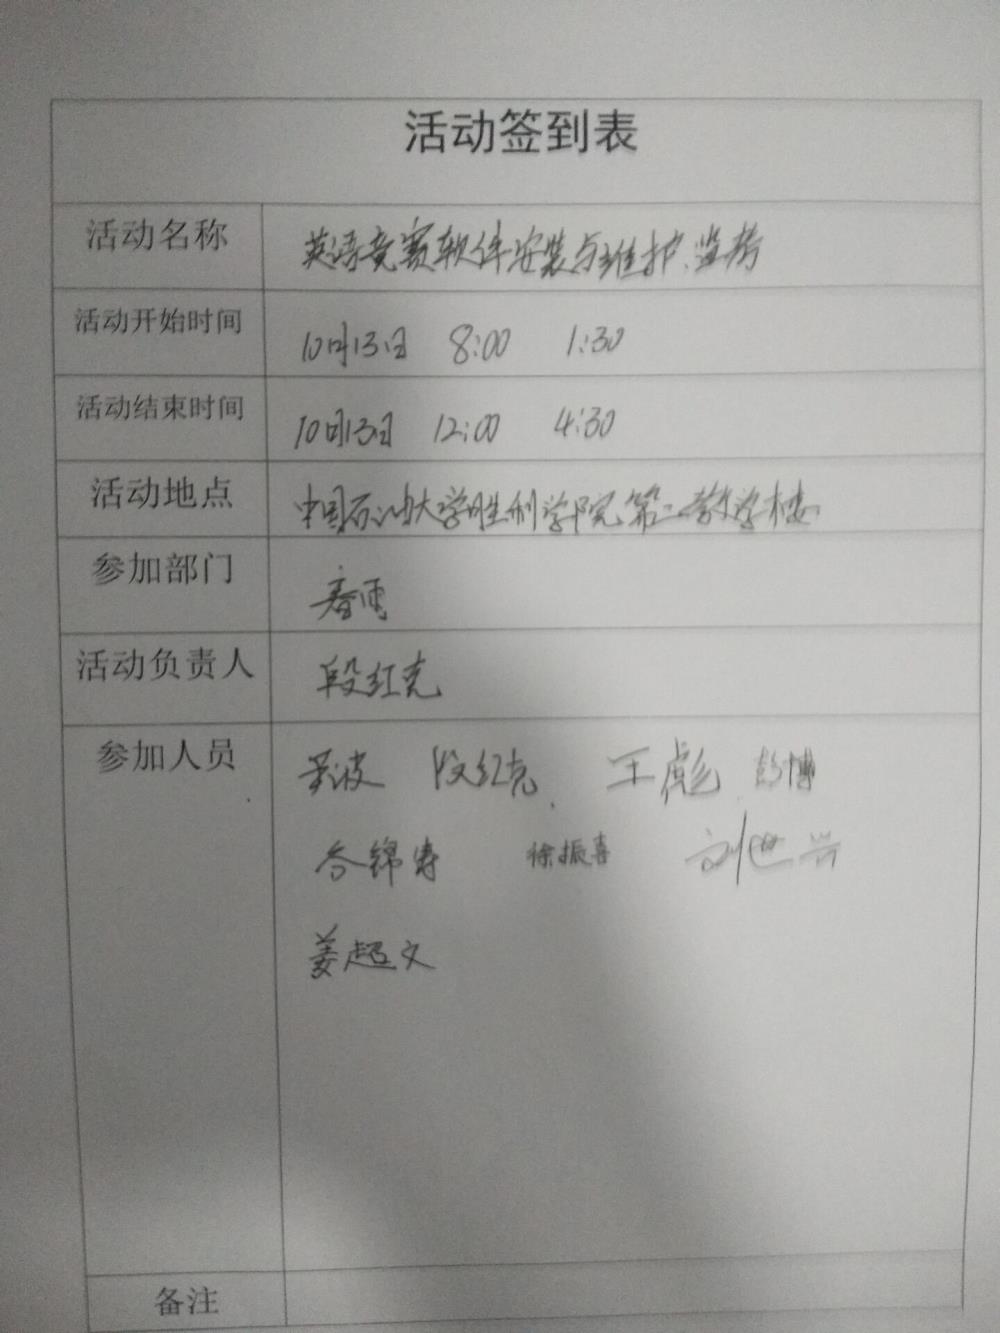 活动签到表
活动名称 英语竞赛软件安装与维护、监考
活动开始时间 10月13日 8:00 1:30
活动结束时间 10月13日 12:00 4:30
活动地点 中国石油大学胜利学院第二教学楼
参加部门 春雨
活动负责人 段红克
参加人员 吴波 段红克 王彪 彭博
锦涛 徐振喜 刘世兴
姜超文
备注